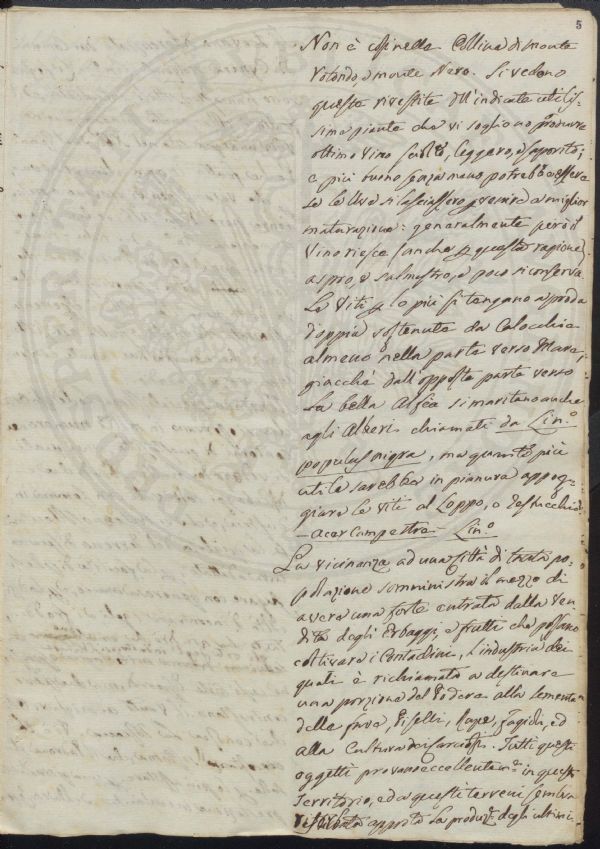 5
Non è così nella Collina di monte
rotondo, e monte Nero. Si vedono
queste rivestite dell'indicate utilis-
sime piante che vi sogliono produrre
ottimo vino leggero, e saporito;
e più buono potrebbe essere
se le Uve si lasciassero venire a miglior
maturazione: generalmente però il
vino riesce (anche p questa ragione)
aspro, e salmastro, e poco si conserva.
Le Viti p lo più si tengano a proda
doppia sostenute da Colocchie
almeno nella parte verso Mare,
giacchè dall'opposta parte verso
la bella Alfea si maritano anche
agli Alberi chiamati da Lin.o
populus nigra, ma quanto più
utile sarebbe in pianura appog-
giare le viti al Loppo, o Testucchio
- acer campestre - Lin.o
La vicinanza ad una Città di tanta po-
polazione somministra il mezzo di
avere una forte entrata dalla ven-
dita degli Erbaggi, e frutti che possano
coltivare i Contadini, l'industria dei
quali è richiamata a destinare
una porzione del Podere alla sementa
delle fave, Piselli, Rape, fagioli, ed
alla Cultura dei Carciofi. Tutti questi
oggetti provano eccellentem.e in questo
Territorio, ed a questi terreni sembra
appunto la produz.e degli ultimi